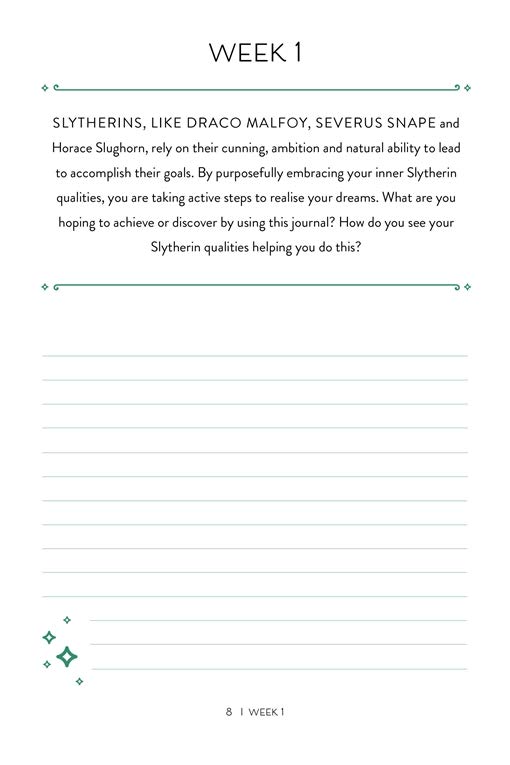 WEEK 1
SLYTHERINS, LIKE DRACO MALFOY, SEVERUS SNAPE and
Horace Slughorn, rely on their cunning, ambition and natural ability to lead
to accomplish their goals. By purposefully embracing your inner Slytherin
qualities, you are taking active steps to realise your dreams. What are you
hoping to achieve or discover by using this journal? How do you see your
Slytherin qualities helping you do this?
8 | WEEK 1